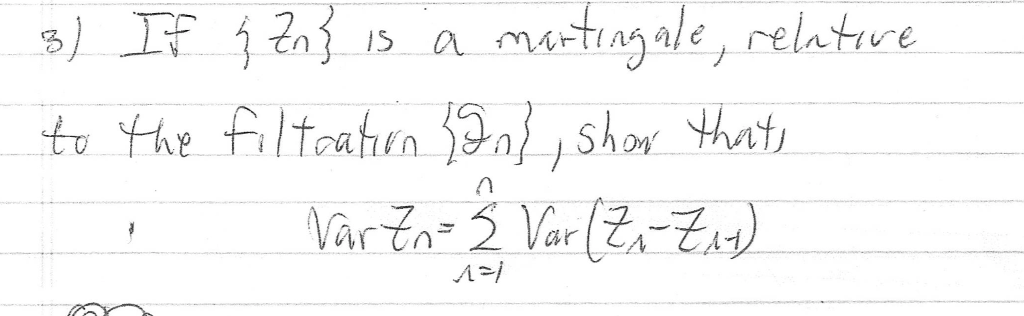 3) If {Zn} is a martingale, relative
to the filtration {ℱn}, show that,
n
Var Zn = Σ Var(Zi - Zi-1)
i=1